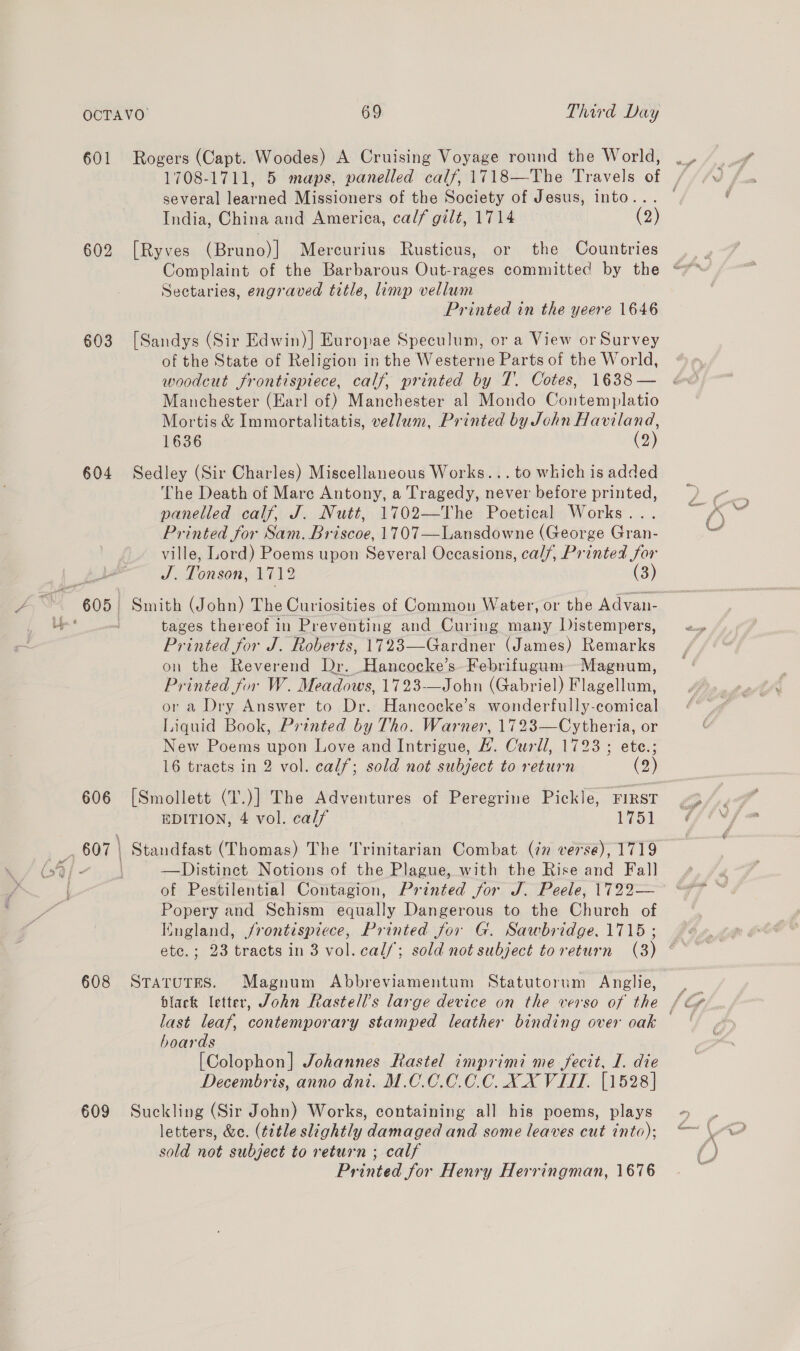 OCTAVO 69 Third Day
601 Rogers (Capt. Woodes) A Cruising Voyage round the World,
1708-1711, 5 maps, panelled calf, 1718—The Travels of
several learned Missioners of the Society of Jesus, into...
India, China and America, calf gilt, 1714 (2)
602 [Ryves (Bruno)] Mercurius Rusticus, or the Countries
Complaint of the Barbarous Out-rages committed by the
Sectaries, engraved title, limp vellum
Printed in the yeere 1646
603 [Sandys (Sir Edwin)] Europae Speculum, or a View or Survey
of the State of Religion in the Westerne Parts of the World,
woodcut frontispiece, calf, printed by T. Cotes, 1638—
Manchester (Earl of) Manchester al Mondo Contemplatio
Mortis & Immortalitatis, vellum, Printed by John Haviland,
1636 (2)
604 Sedley (Sir Charles) Miscellaneous Works... to which is added
The Death of Marc Antony, a Tragedy, never before printed,
panelled calf, J. Nutt, 1702—The Poetical Works...
Printed for Sam. Briscoe, 1707—Lansdowne (George Gran-
ville, Lord) Poems upon Several Occasions, calf, Printed for
J. Tonson, 1712 (3)
605 Smith (John) The Curiosities of Common Water, or the Advan-
tages thereof in Preventing and Curing many Distempers,
Printed for J. Roberts, 1723—Gardner (James) Remarks
on the Reverend Dr. Hancocke's Febrifugum Magnum,
Printed for W. Meadows, 1723—John (Gabriel) Flagellum,
or a Dry Answer to Dr. Hancocke's wonderfully-comical
Liquid Book, Printed by Tho. Warner, 1723—Cytheria, or
New Poems upon Love and Intrigue, E. Curll, 1723; etc.;
16 tracts in 2 vol. calf; sold not subject to return (2)
606 [Smollett (T.)] The Adventures of Peregrine Pickle, FIRST
EDITION, 4 vol. calf 1751
607 Standfast (Thomas) The Trinitarian Combat (in verse), 1719
—Distinct Notions of the Plague, with the Rise and Fall
of Pestilential Contagion, Printed for J. Peele, 1722—
Popery and Schism equally Dangerous to the Church of
England, frontispiece, Printed for G. Sawbridge, 1715;
etc.; 23 tracts in 3 vol. calf; sold not subject to return (3)
608 STATUTES. Magnum Abbreviamentum Statutorum Anglie,
black letter, John Rastell's large device on the verso of the
last leaf, contemporary stamped leather binding over oak
boards
[Colophon] Johannes Rastel imprimi me fecit, I. die
Decembris, anno dni. M.C.C.C.C.C. XXVIII. [1528]
609 Suckling (Sir John) Works, containing all his poems, plays
letters, &c. (title slightly damaged and some leaves cut into);
sold not subject to return; calf
Printed for Henry Herringman, 1676